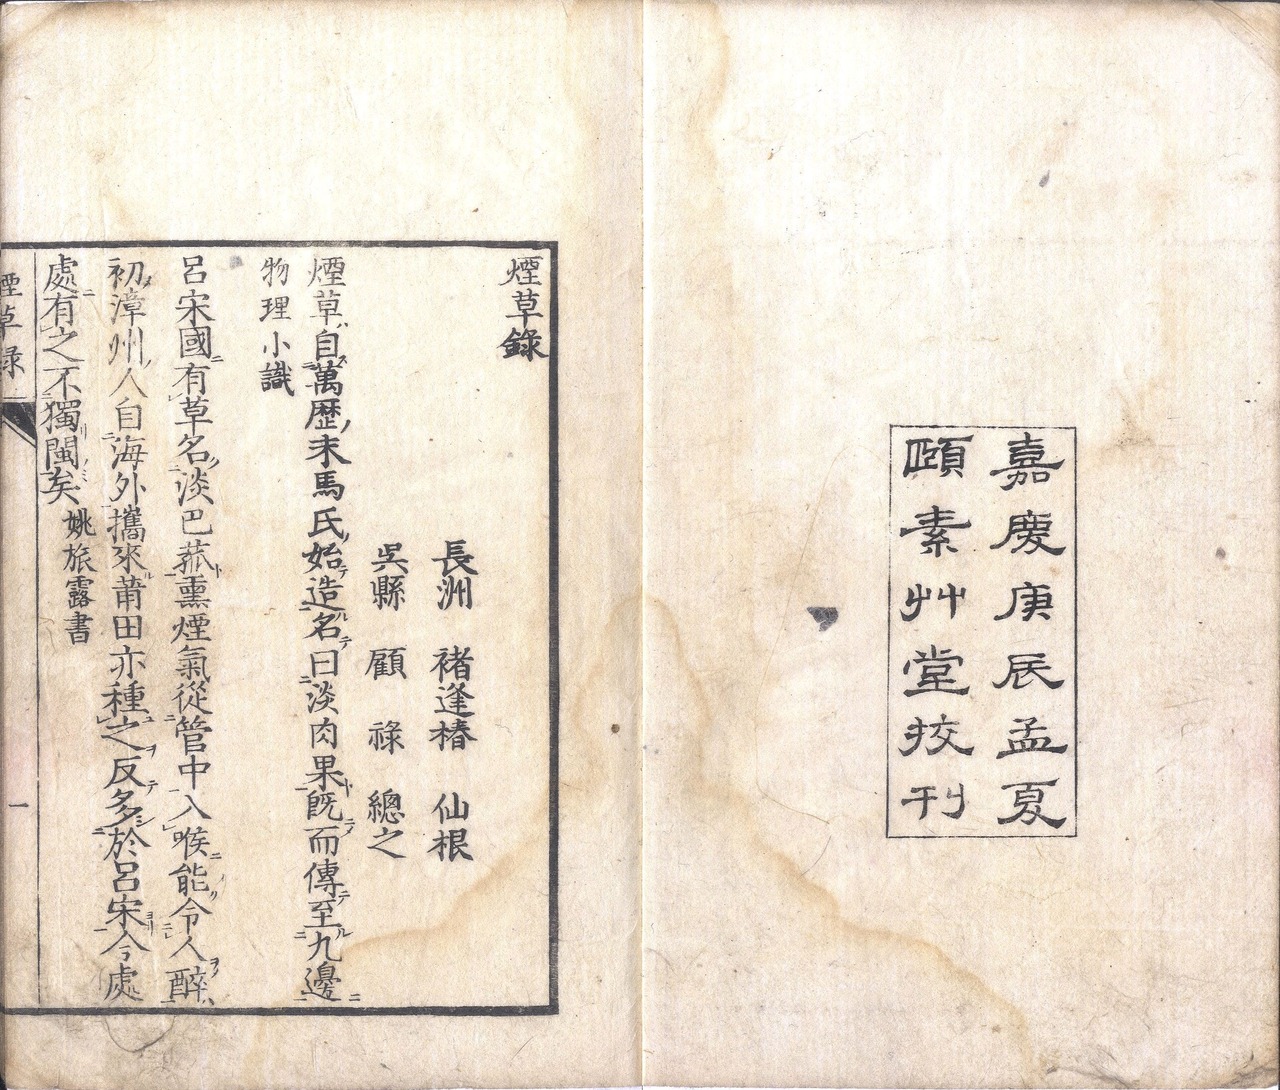 嘉慶庚辰孟夏
頤素艸堂挍刊
煙草錄
長洲 褚逢椿 仙根
吳縣 顧 祿 總之
煙草自萬歷末馬氏始造名曰淡肉果既而傳至九邊
物理小識
呂宋國有草名淡巴菰熏煙氣從管中入喉能令人醉
初漳州人自海外攜來莆田亦種之反多於呂宋今處
處有之不獨閩矣 姚旅露書
煙草錄
一